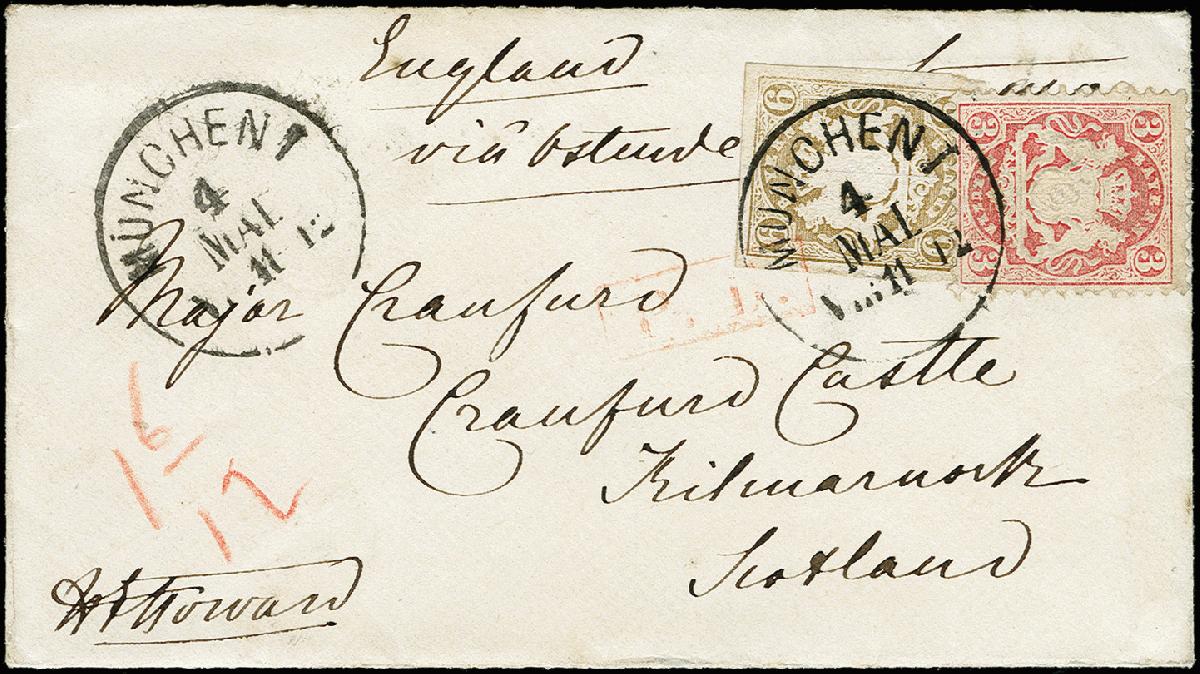 England
viâ Ostende
MÜNCHEN I
4
MAI
11-12
MÜNCHEN I
4
MAI
VM 11 12
6
6
6
3
3
3
3
Major Craufurd
Craufurd Castle
Kilmarnock
Scotland
P.D.
16
12
Howard